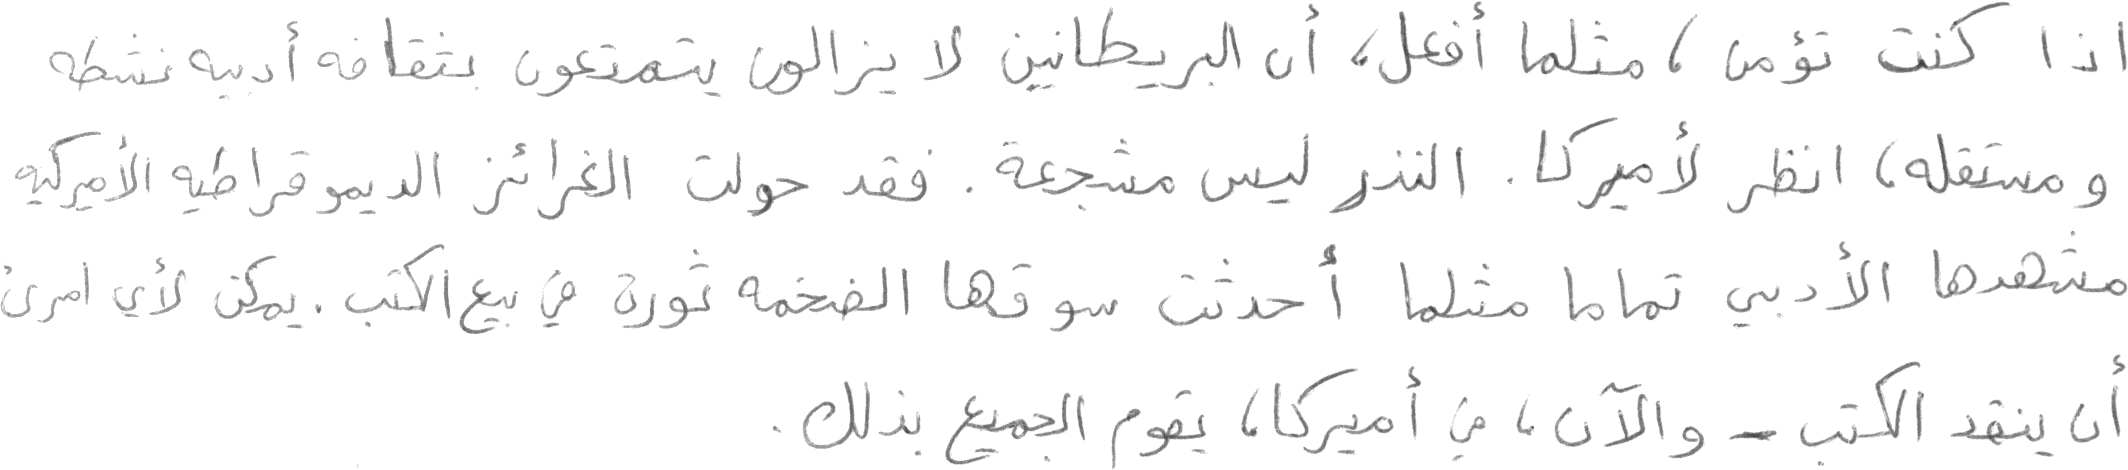 اذا كنت تؤمن ، مثلما أفعل، أن البريطانيين لا يزالون يتمتعون بثقافه أدبيه نشطه
ومستقله، انظر لأميركا. النذر ليس مشجعة. فقد حولت الغرائز الديموقراطيه الأميركيه
مشهدها الأدبي تماما مثلما أحدثت سوقها الضخمه ثورة في بيع الكتب. يمكن لأي امرئ
أن ينقد الكتب - والآن، في أميركا، يقوم الجميع بذلك.